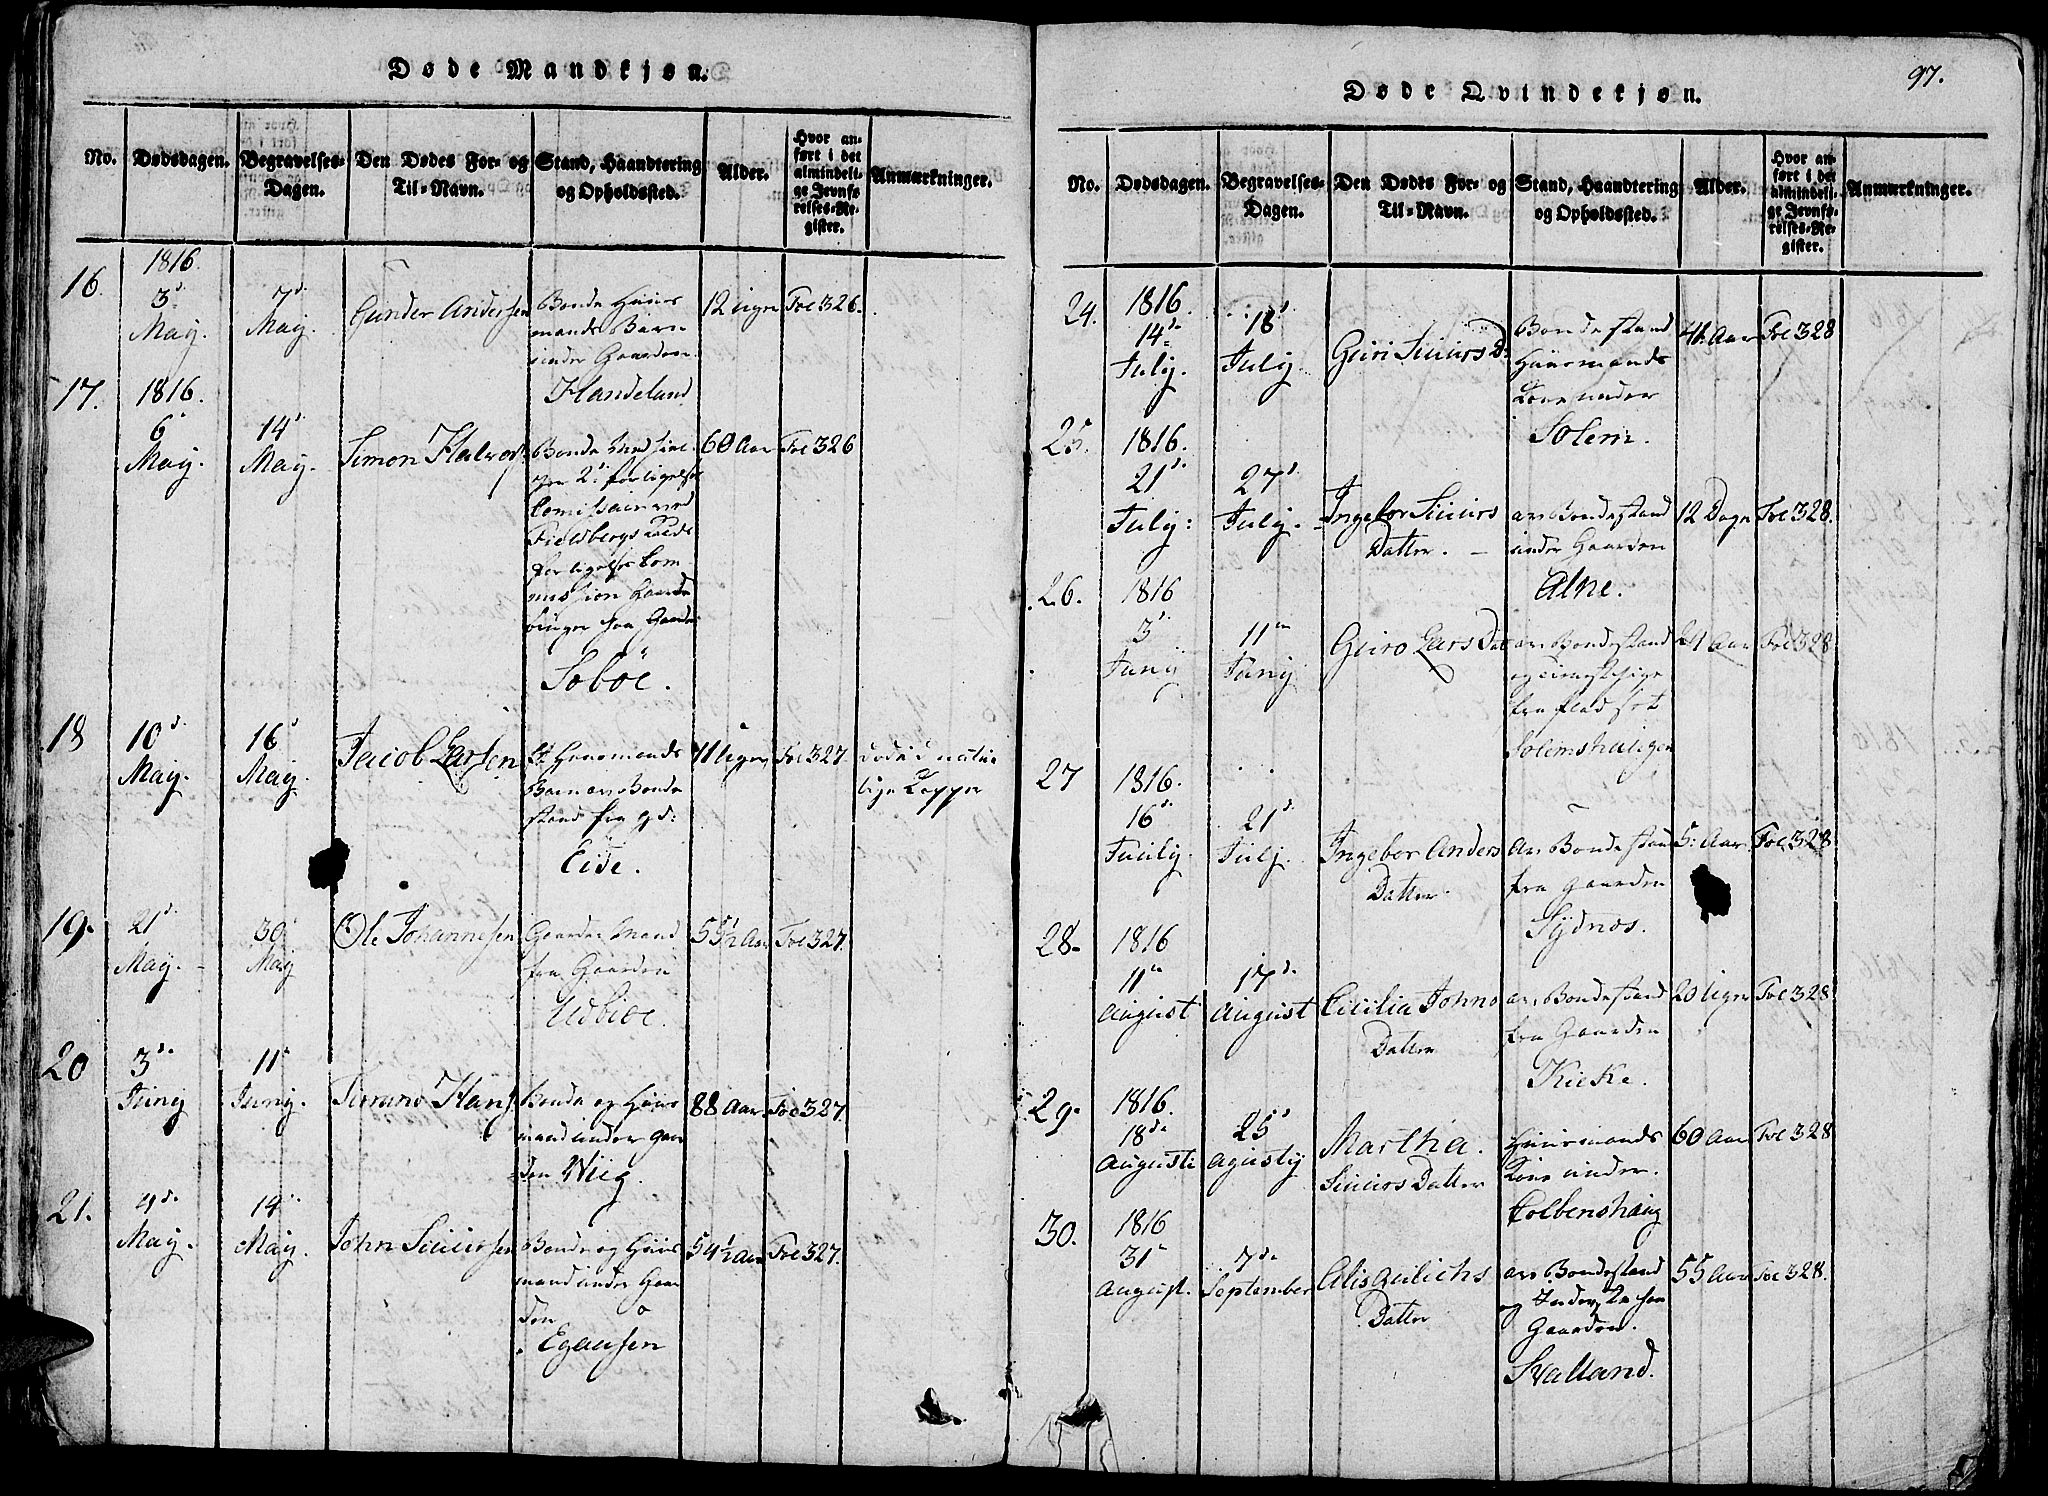 Døde Mandkjøn.
No. Dødsdagen. Begravelses-Dagen. Den Dødes For- og Til-Navn. Stand, Haandtering og Opholdssted. Alder. Hvor anført i det almindelige Jevnførelses-Register. Anmærkninger.
16. 1816.
3d May. 7d May. Gunder Andersen Bonde Huus
mands Barn
under Gaarden
Handeland 12 uger Fol 326.
17. 1816.
6 May. 14d May. Simon Halvors 60 Aar Fol 326
forligelses
Comissair ved
Fieldbergs
forligelses Com
mission Gaard
bruger fra Gaarden
Söböe.
18 10d May. 16d May. Jacob Larsen Et Huusmands
Barn av Bonde
stand fra gd:
Eide. 11 Uger Fol 327. döde i natur
lige Kopper
19. 21d May. 30 May Ole Johannesen Gaardmand
fra Gaarden
Udbiöe. 55 1/2 Aar Fol 327.
20 3de Juny 11 Juny. Simund Hans Bonde og Huus
mand under Gaar
den Wiig. 88 Aar Fol 327.
21. 4de May. 14 May. John Siursen Bonde og Huus
mand under Gaar
den
Egaasen 54 1/2 Aar Fol 327.
Døde Qvindekjøn.
97.
No. Dødsdagen. Begravelses-Dagen. Den Dødes For- og Til-Navn. Stand, Haandtering og Opholdssted. Alder. Hvor anført i det almindelige Jevnførelses-Register. Anmærkninger.
24. 1816.
14de July. 18d July. Guri Siurs D: Bondestand
Huusmands
Kone under
Solem. 41 Aar Fol 328
25. 1816.
21d July: 27d July. Ingebor Siurs
Datter. av Bondestand
under Gaarden
Alne. 12 Dage Fol 328.
26. 1816
3d Juny 11te Juny Guro Lars Dat av Bondestand
fra Pladset
Solemshaugen 24 Aar Fol 328
27 1816.
16de July. 21d July. Ingebor Anders
Datter. Av Bondestand
fra Gaarden
Sydnes. 5: Aar Fol 328.
28. 1816
11te August 17de August Cicilia Johns
Datter av Bondestand
fra Gaarden
Kieke. 20 Uger Fol 328
29. 1816.
18de Augusti 25d Agusty Martha
Siurs Datter Huusmands
Kone under
Colbenshaug 60 Aar Fol 328
30. 1816
31te August. 7de September
Datter av Bondestand
og Inderste paa
Gaarden.
Svalland. 55 Aar Fol 328.